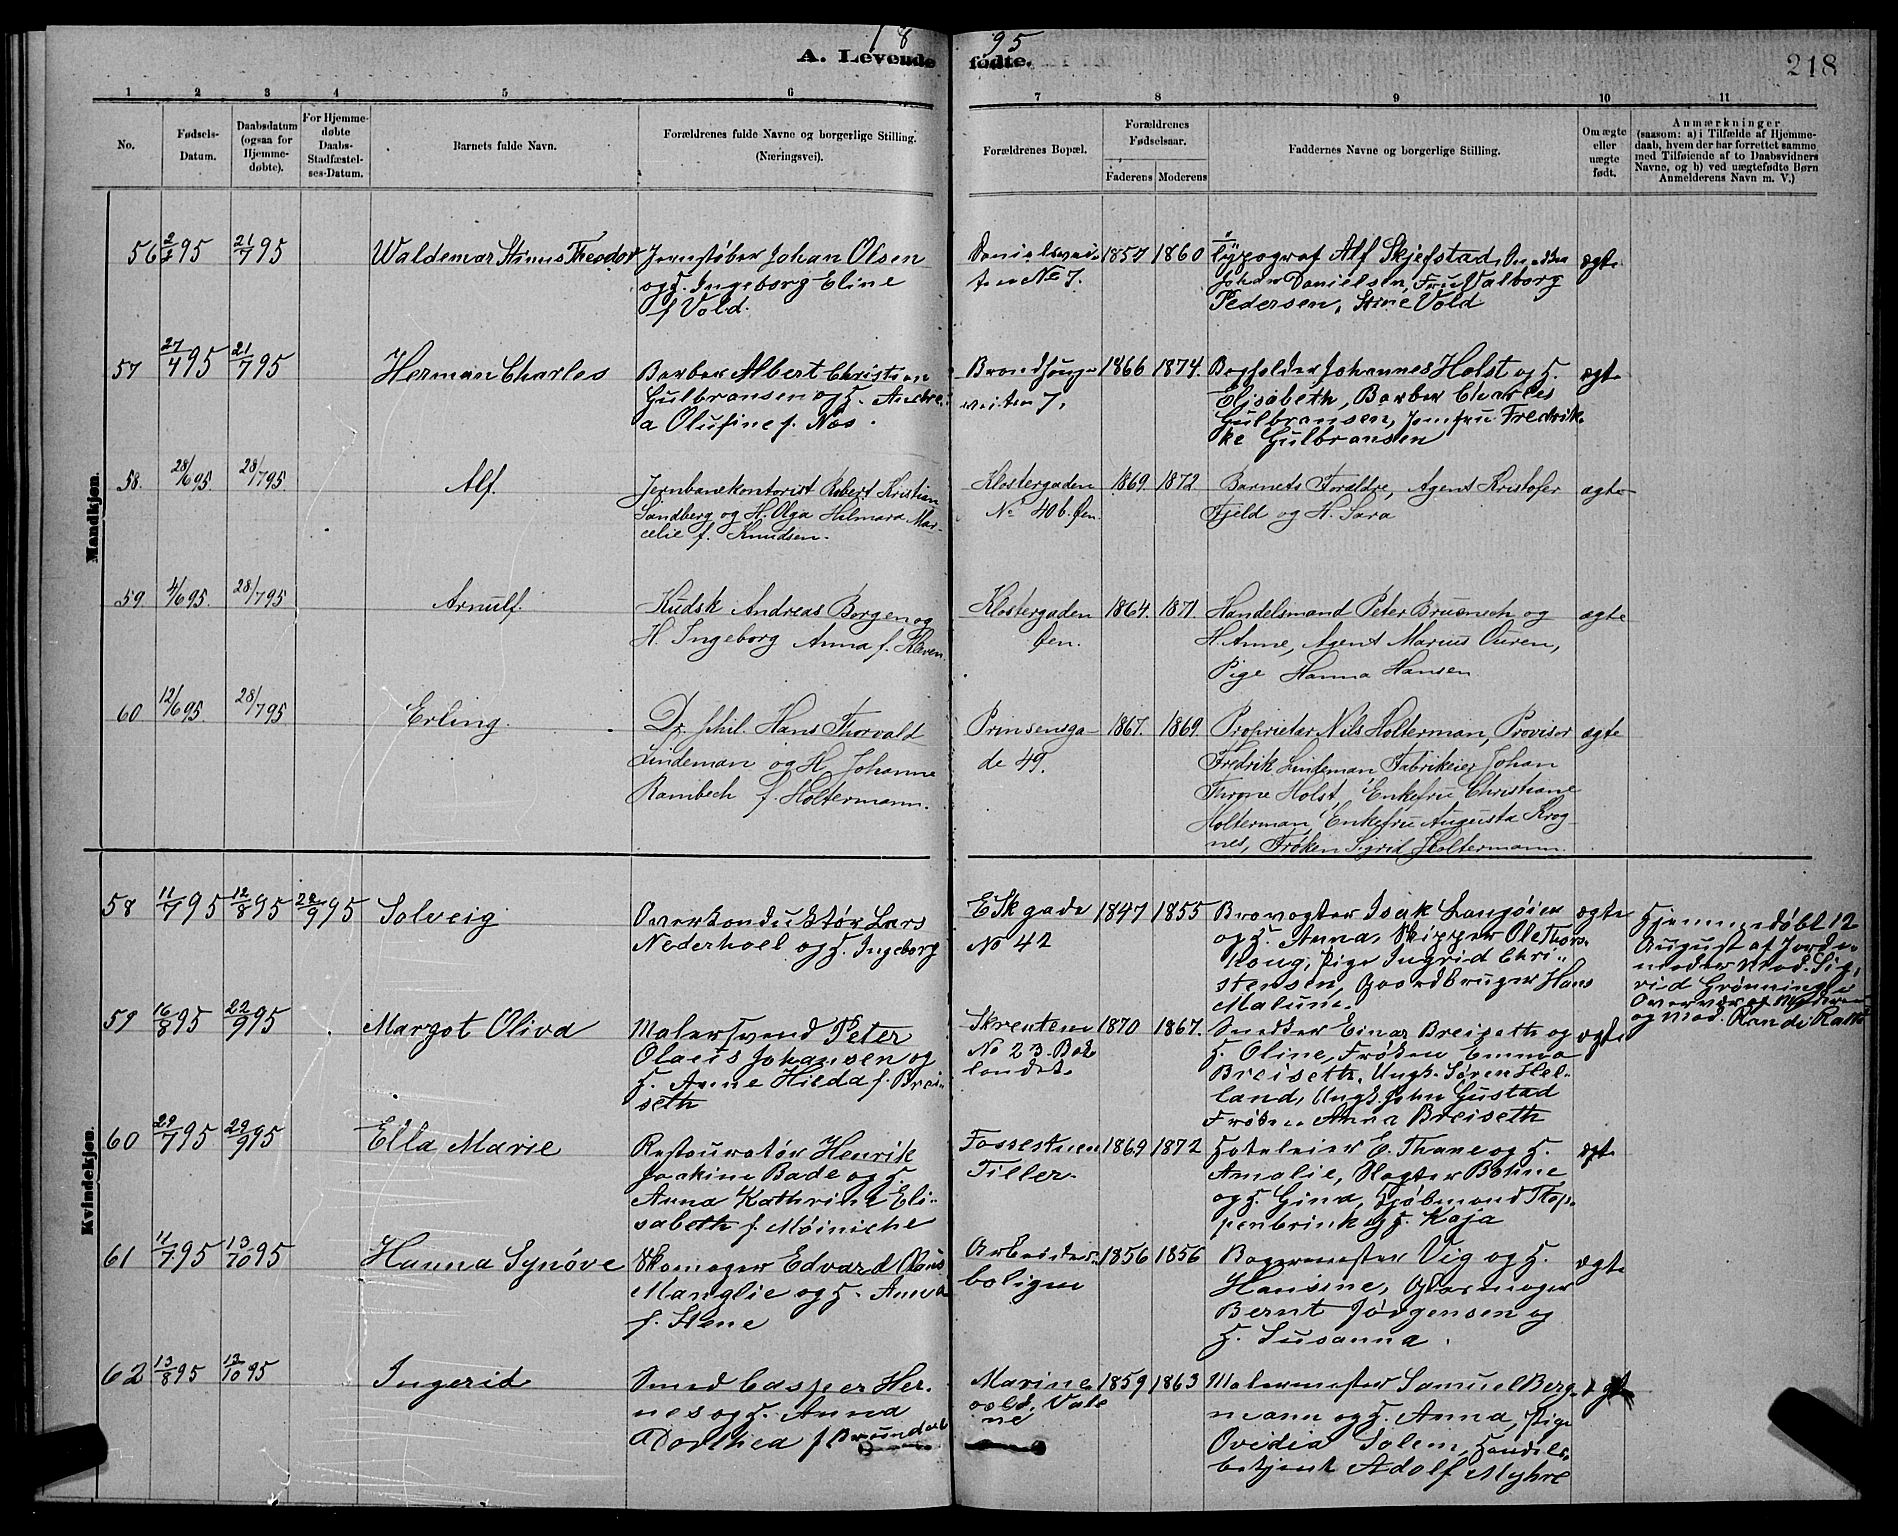 18 95
A. Levende fødte.
218
1 2 3 4 5 6 7 8 9 10 11
No.
Fødsels-
Datum.
Daabsdatum
(ogsaa for
Hjemme-
døbte).
For Hjemme-
døbte
Daabs-
Stadfæstel-
ses-Datum.
Barnets fulde Navn.
Forældrenes fulde Navne og borgerlige Stilling.
(Næringsvei).
Forældrenes Bopæl.
Forældrenes
Fødselsaar.
Faderens Moderens
Faddernes Navne og borgerlige Stilling.
Om ægte
eller
uægte
født.
Anmærkninger
(saasom: a) i Tilfælde af Hjemme-
daab, hvem der har forrettet samme
med Tilføiende af to Daabsvidners
Navne, og b) ved uægtefødte Børn
Anmelderens Navn m. V.)
Mandkjøn.
56 95 21/7 95 Waldemar Stinus Theodor
Jernstøber Johan Olsen
og H. Ingeborg Eline
f. Vold.
Danielsvei-
ten No 7.
1857 1860
Typograf Alf Skjefstad,
Johan Danielsen, Fru Valborg
Pedersen, Stine Vold
ægte
57 27/4 95 21/7 95 Herman Charles
Barber Albert Christian
Gulbransen og H. Andre-
a Olufine f. Næs.
Brandhaug-
veiten 7.
1866 1874.
Bogholder Johannes Holst og H.
Elisabeth, Barber Charles
Gulbransen, Jomfru Fredrik-
ke Gulbransen
ægte
58. 28/6 95. 28/7 95. Alf.
Jernbanekontorist Robert Kristian
Sandberg og H. Olga Halmara Mar-
celie f. Knudsen.
Klostergaden
No 40b. Øen.
1869. 1872
Barnets Forældre, Agent Kristofer
Fjeld og H. Sara
ægte
59. 4/6 95. 28/7 95 Arnulf.
Kudsk Andreas Borgen og
H. Ingeborg Anna f. Kleven.
Klostergaden
Øen.
1864. 1871.
Handelsmand Peter Bruenech og
H. Anne, Agent Marius Ouren,
Pige Hanna Hansen
ægte
60 12/6 95. 28/7 95 Erling.
Dr. phil. Hans Thorvald
Lindeman og H. Johanne
Rambech f. Holtermann.
Prinsensga-
de 49.
1867. 1869.
Proprietær Nils Holterman, Provisor
Fredrik Lindeman Fabrikeier Johan
Throne Holst, Enkefru Christiane
Holterman, Enkefru Augusta Krog-
nes, Frøken Sigrid Holtermann.
ægte
Kvindekjøn.
58 11/7 95 12/8 95 22/9 95 Solveig
Overkonduktør Lars
Nederhoel og H. Ingeborg
E Sk gade
No 42
1847 1855
Brovogter Isak Langjøien
og H. Anna, Skipper Ole Thors-
haug, Pige Ingrid Chri-
stensen, Gaardbruger Hans
Malum.
ægte
Hjemmedøbt 12
August af Jorde-
moder Mad. Sig-
rid Grønning i
Overvær af Moderen
og Mad. Randi
59 16/8 95 22/9 95 Margot Oliva
Malersvend Peter
Olaus Johansen og
H. Anne Hilda f. Brei-
seth
Skrenten
No 23. Bak
landet.
1870 1867.
Snedker Einar Breiseth og
H. Oline, Frøken Emma
Breiseth, Ungk. Søren Hel-
land, Ungk. John Gustad
Frøken Anna Breiseth
ægte
60 29/7 95 29/9 95 Ella Marie
Restauratør Henrik
Joakim Bade og H.
Anna Kathrine Eli-
sabeth f. Møiniche
Fossestuen
Tiller.
1869 1872
Hoteleier E. Thane og H.
Amalie, Slagter Bohne
og H. Gina, Kjøbmand Thop-
penbrink og H. Kaja
ægte
61 11/7 95 13/10 95 Hanna Synøve
Skomager Edvard Claus
Manglie og H. Anna
f. Stene
Arbeider-
boligen
1856 1856
Bagermester Vig og H.
Hansine, Glarmager
Bernt Jørgensen og
H. Susanna.
ægte
62 13/8 95 13/10 95 Ingerid
Smed Casper Her-
nes og H. Anna
Dorthea f
Marine
1859 1863
Malermester Samuel Berg-
mann og H. Anna, Pige
Ovidia Solem, Handels-
betjent Adolf Myhre
ægte